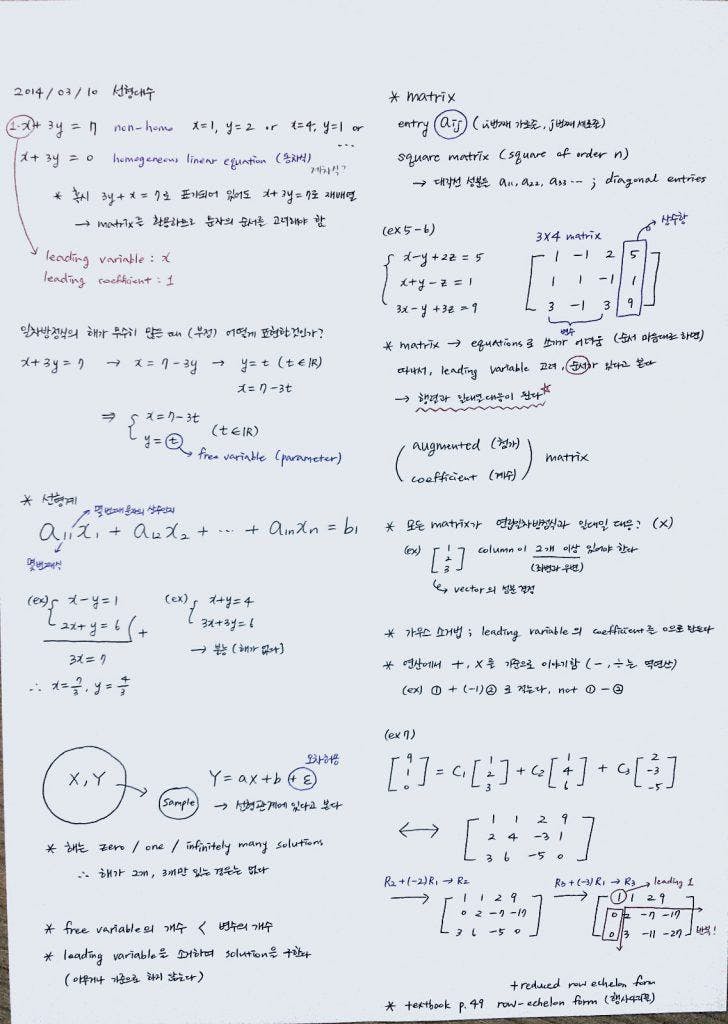 2014/03/10 선형대수
1·x + 3y = 7 non-homo x=1, y=2 or x=4, y=1 or ...
x + 3y = 0 homogeneous linear equation (동차식)
제차식?
* 혹시 3y + x = 7로 표기되어 있어도 x + 3y = 7로 재배열
→ matrix를 활용하므로 문자의 순서를 고려해야 함
leading variable : x
leading coefficient : 1
일차방정식의 해가 무수히 많은 때 (부정) 어떻게 표현할것인가?
x + 3y = 7 → x = 7 - 3y → y = t (t∈ℝ)
x = 7 - 3t
⇒ { x = 7 - 3t
y = t (t∈ℝ)
free variable (parameter)
* 선형계
몇번째 문자의 상수인지
a₁₁x₁ + a₁₂x₂ + ··· + a₁ₙxₙ = b₁
몇번째식
(ex) { x - y = 1
2x + y = 6 ( +
3x = 7
∴ x = 7/3, y = 4/3
(ex) { x + y = 4
3x + 3y = 6
→ 불능 (해가 없다)
X, Y → sample
오차허용
Y = ax + b + ε
→ 선형관계에 있다고 본다
* 해는 zero / one / infinitely many solutions
∴ 해가 2개, 3개만 있는 경우는 없다
* free variable의 개수 < 변수의 개수
* leading variable을 소거하며 solution을 구한다
(아무거나 기준으로 하지 않는다)
* matrix
entry aᵢⱼ (i번째 가로줄, j번째 세로줄)
square matrix (square of order n)
→ 대각선 성분은 a₁₁, a₂₂, a₃₃ ··· ; diagonal entries
(ex 5-6)
{ x - y + 2z = 5
x + y - z = 1
3x - y + 3z = 9
3X4 matrix
상수항
[ 1 -1 2 5
1 1 -1 1
3 -1 3 9 ]
변수
* matrix → equations로 쓰기가 어려움 (순서 마음대로 하면)
따라서, leading variable 고려, 순서가 있다고 본다
→ 행렬과 일대일 대응이 된다☆
( augmented (첨가)
coefficient (계수) ) matrix
* 모든 matrix가 연립일차방정식과 일대일 대응? (X)
(ex) [ 1
2
3 ] column이 2개 이상 있어야 한다
(좌변과 우변)
vector의 성분 결정
* 가우스 소거법 ; leading variable의 coefficient를 0으로 만든다
* 연산에서 +, X를 기준으로 이야기함 (-, ÷는 역연산)
(ex) ① + (-1)② 로 적는다, not ① - ②
(ex 7)
[ 9
1
0 ] = C₁ [ 1
2
3 ] + C₂ [ 1
4
6 ] + C₃ [ 2
-3
-5 ]
↔ [ 1 1 2 9
2 4 -3 1
3 6 -5 0 ]
R₂ + (-2)R₁ → R₂
→ [ 1 1 2 9
0 2 -7 -17
3 6 -5 0 ]
R₃ + (-3)R₁ → R₃
leading 1
→ [ 1 1 2 9
0 2 -7 -17
0 3 -11 -27 ]
반복!
+ reduced row echelon form
* textbook p.49 row-echelon form (행사다리꼴)